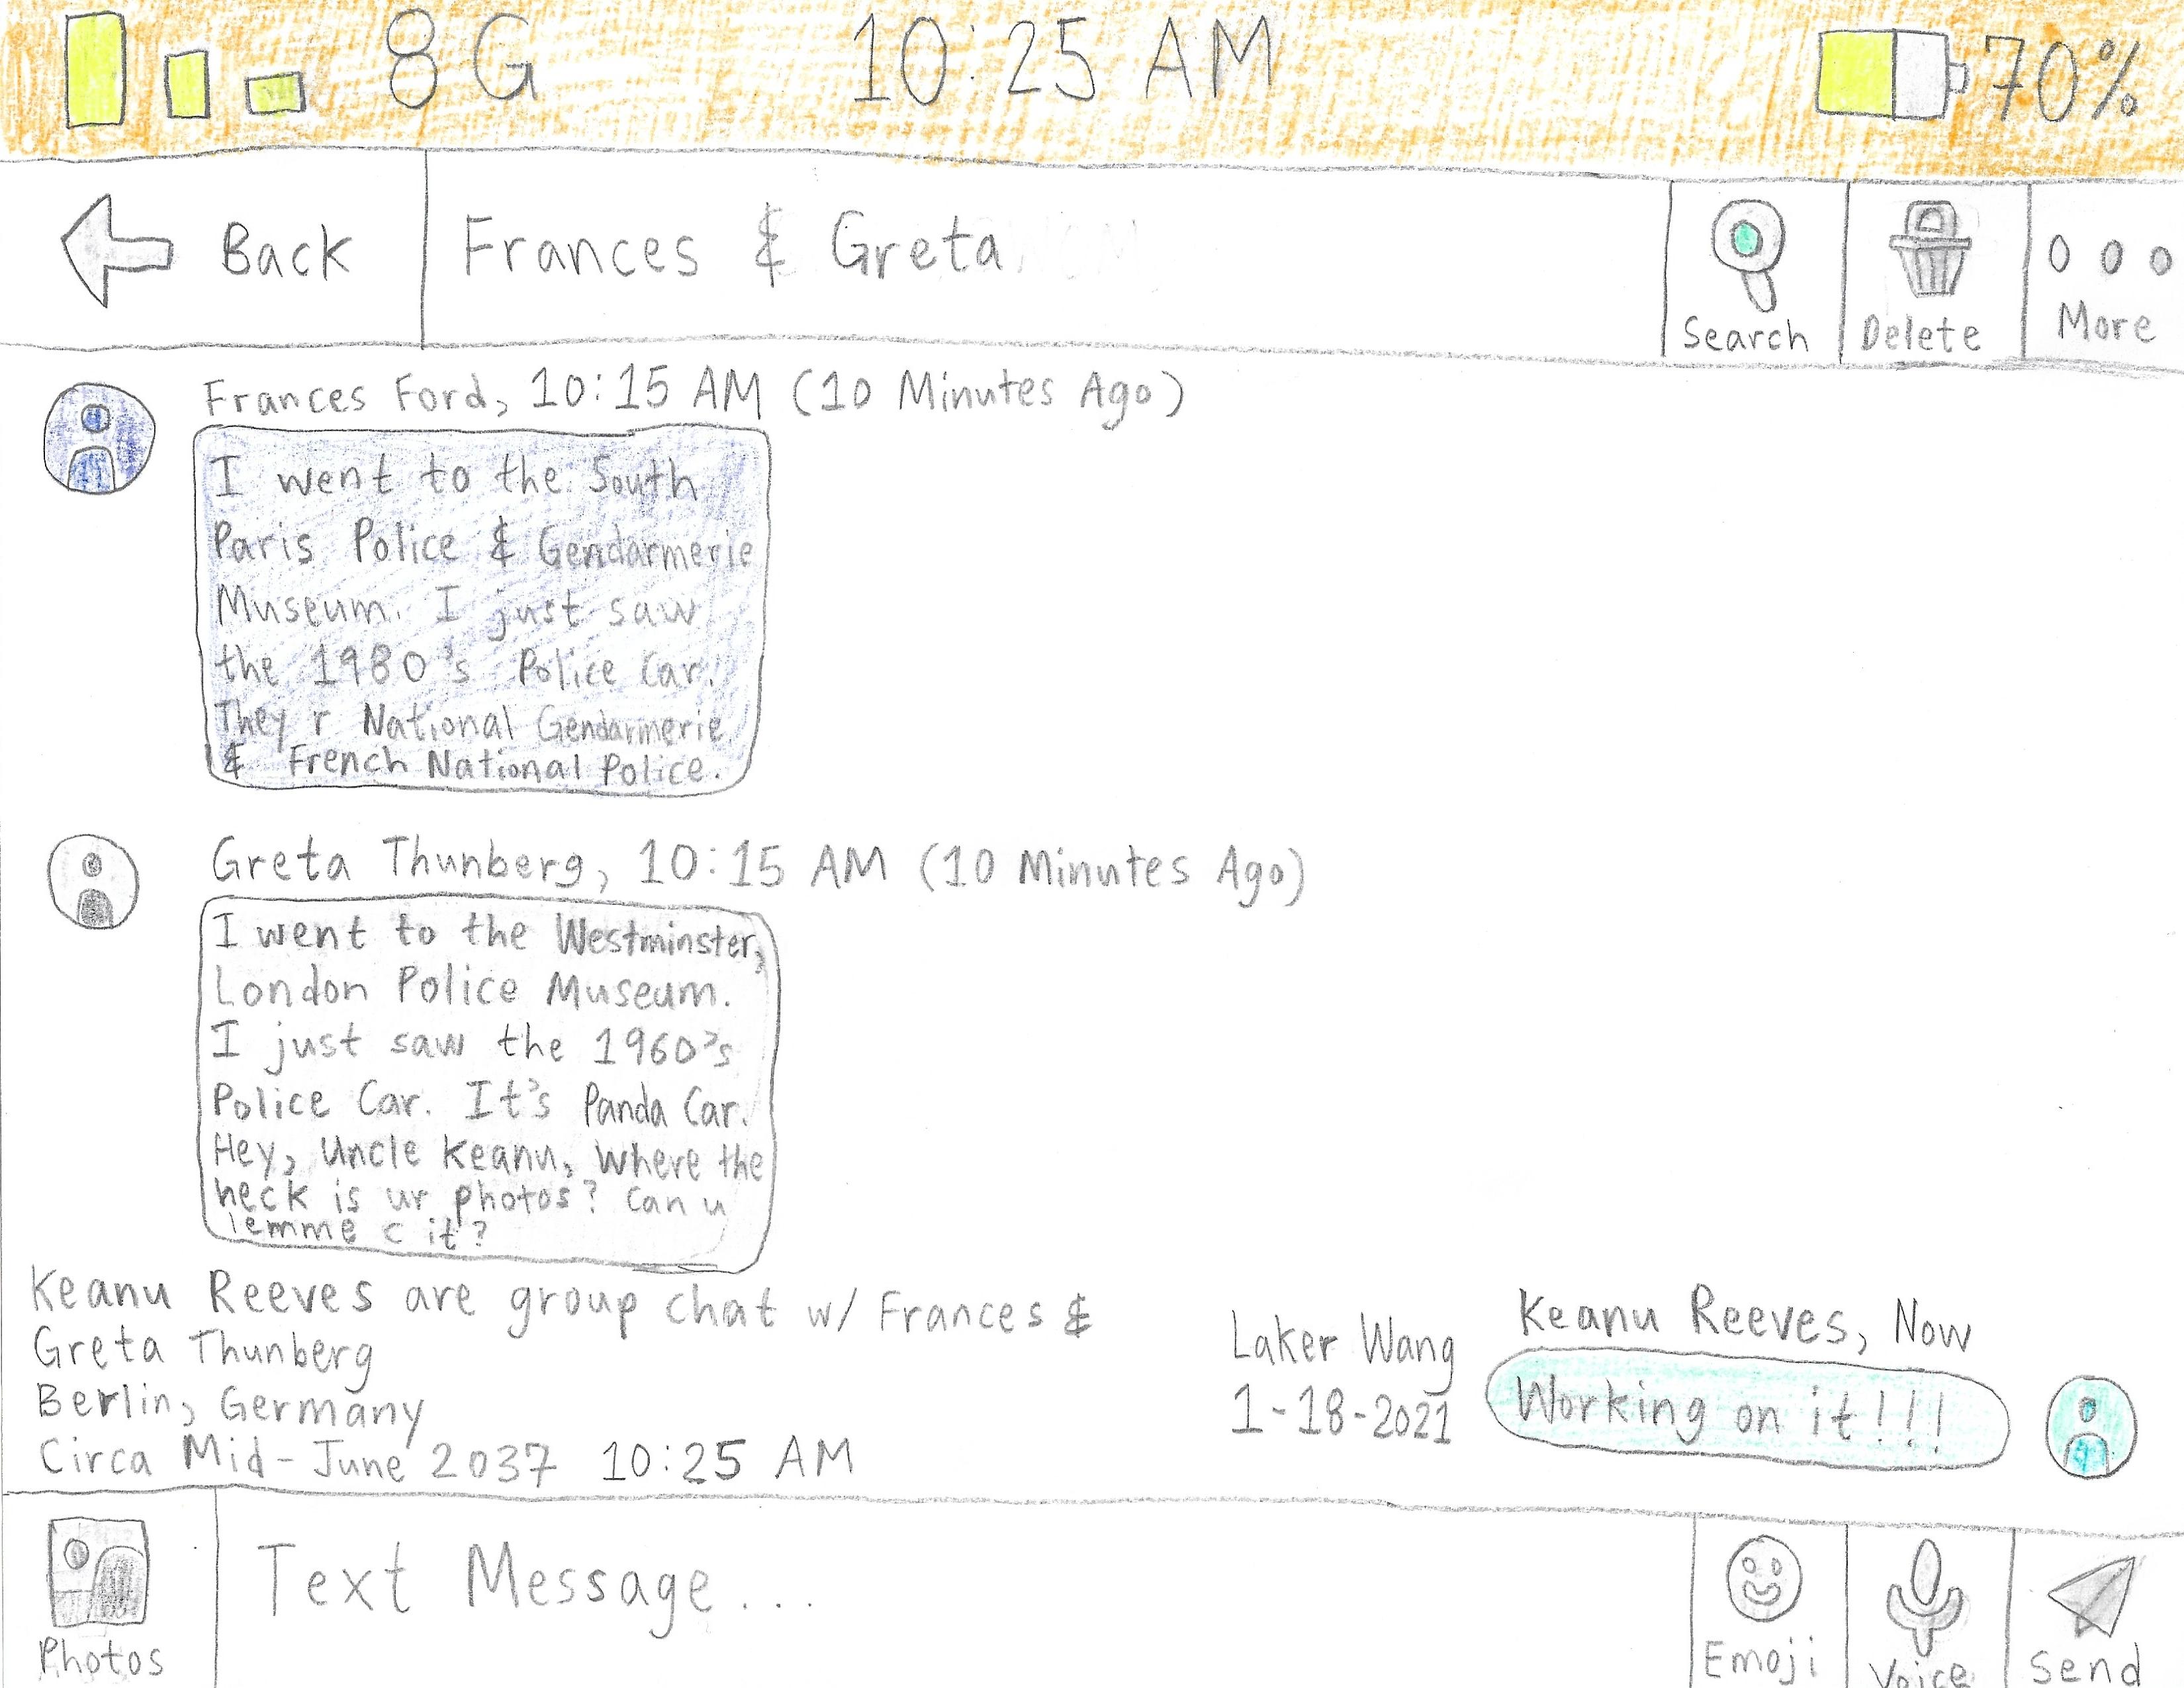 8G 10:25 AM 70%
Back
Frances & Greta
Search
Delete
More
Frances Ford, 10:15 AM (10 Minutes Ago)
I went to the South
Paris Police & Gendarmerie
Museum. I just saw
the 1980's Police Car.
They r National Gendarmerie
& French National Police.
Greta Thunberg, 10:15 AM (10 Minutes Ago)
I went to the Westminster,
London Police Museum.
I just saw the 1960's
Police Car. It's Panda Car.
Hey, Uncle Keanu, Where the
heck is ur photos? Can u
lemme c it?
Keanu Reeves are group chat w/ Frances &
Greta Thunberg
Berlin, Germany
Circa Mid-June 2037 10:25 AM
Laker Wang
1-18-2021
Keanu Reeves, Now
Working on it!!!
Photos
Text Message...
Emoji
Voice
Send